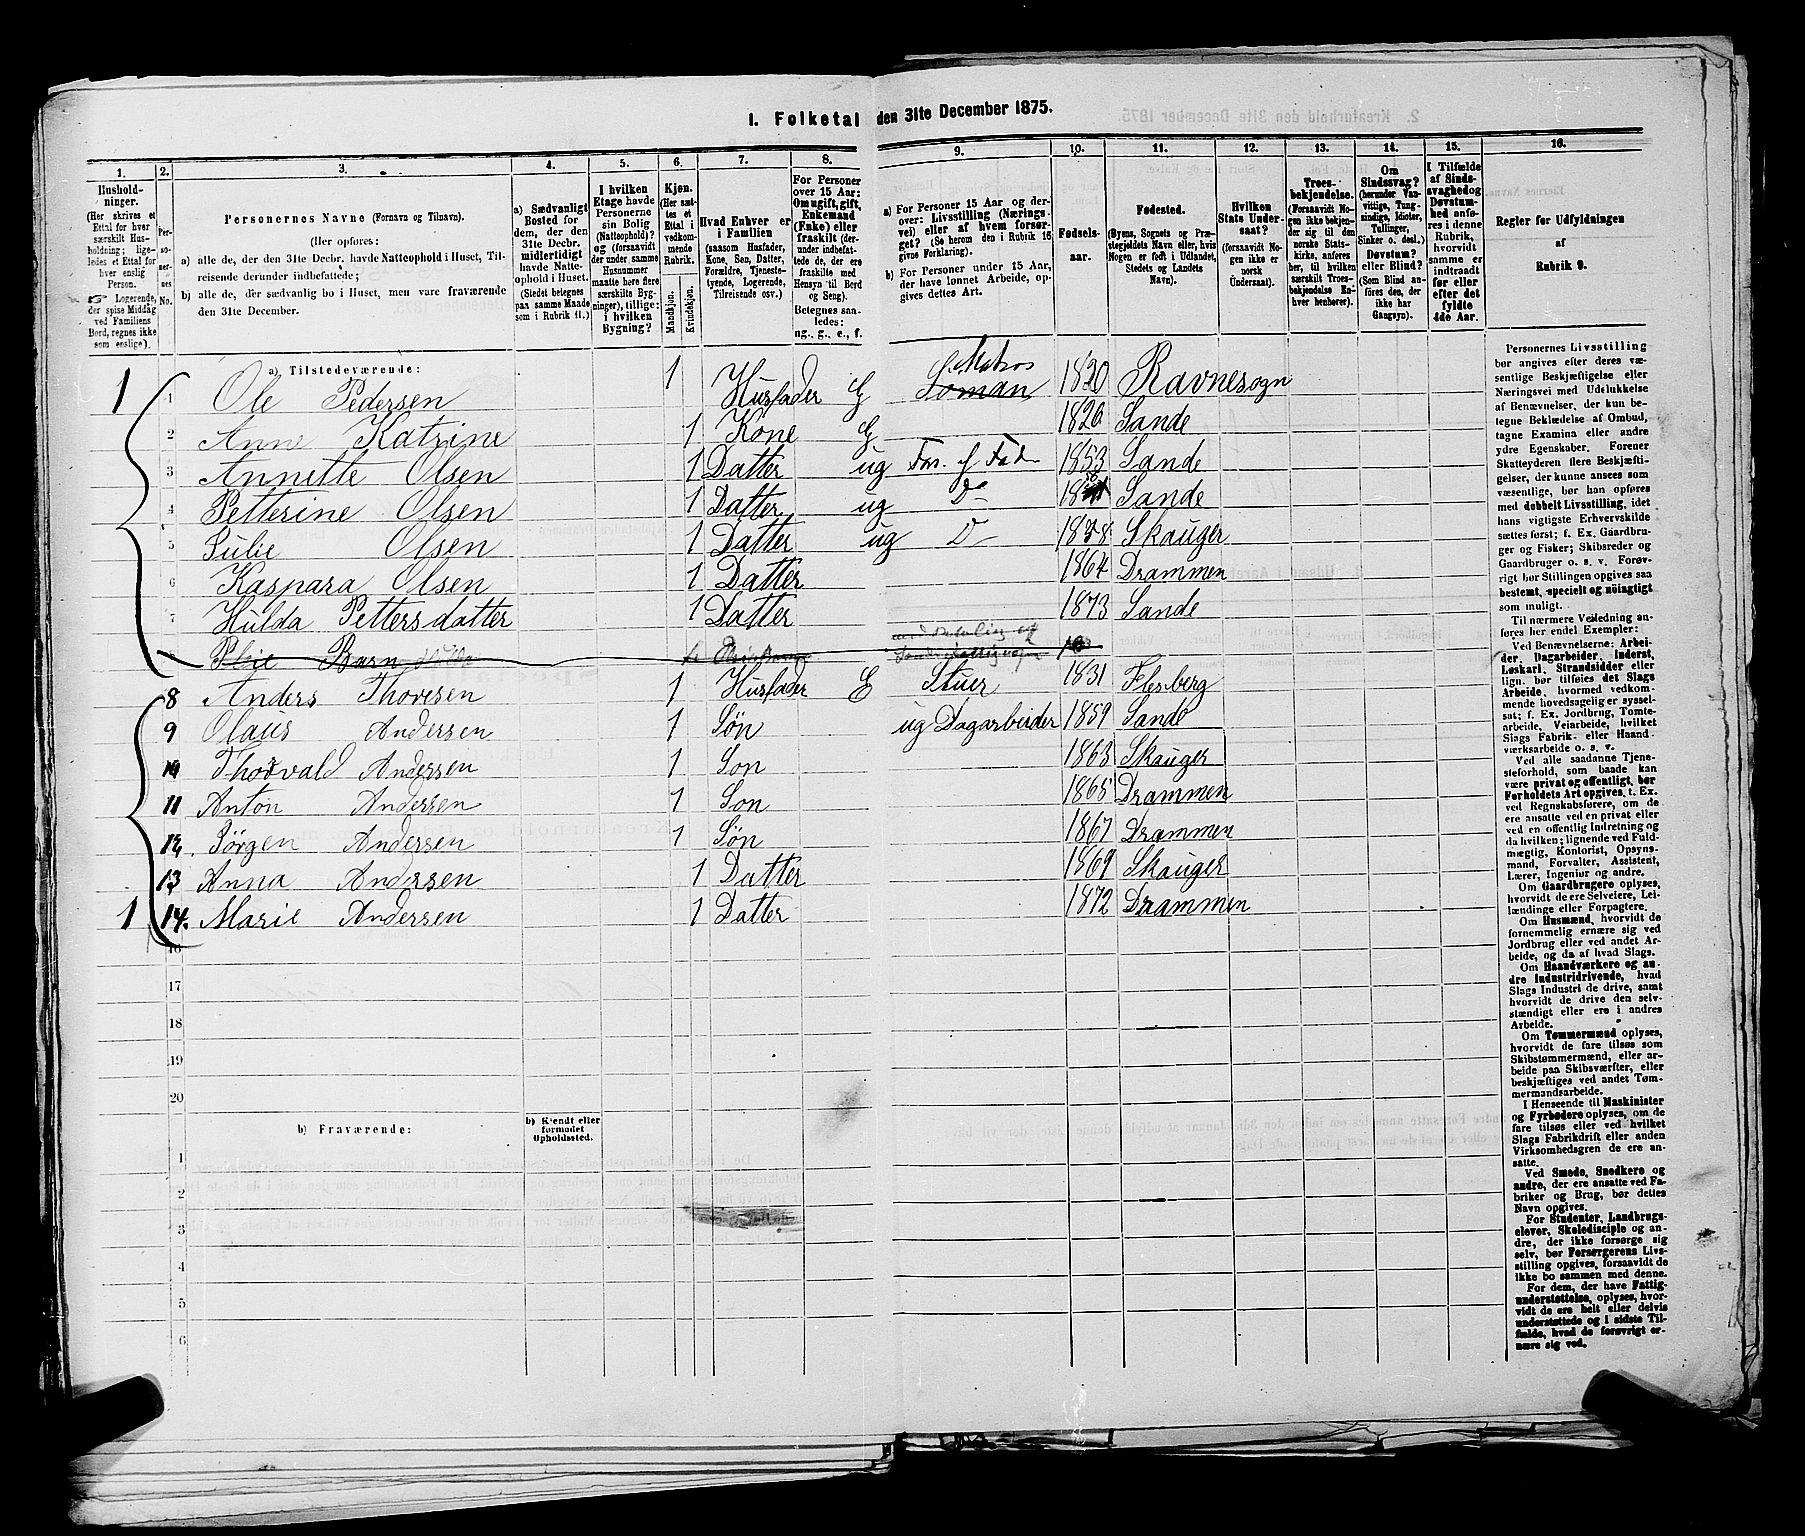 I. Folketal den 31te December 1875.
1.
Husholdninger.
(Her skrives et
Ettal for hver
særskilt Husholdning;
ligeledes et Ettal for
hver enslig
Person.
Logerende,
der spise Middag
ved Familiens
Bord, regnes ikke
som enslige).
2.
Personernes
No.
3.
Personernes Navne (Fornavn og Tilnavn).
(Her opføres:
a) alle de, der den 31te Decbr. havde Natteophold i Huset, Tilreisende derunder indbefattede;
b) alle de, der sædvanlig bo i Huset, men vare fraværende
den 31te December.
4.
a) Sædvanligt
Bosted for
dem, der den
31te Decbr.
midlertidigt
havde Natteophold i Huset.
(Stedet betegnes
paa samme Maade
som i Rubrik 11.)
5.
I hvilken
Etage havde
Personerne
sin Bolig
(Natteophold)?
og (forsaavidt
der under samme
Husnummer
maatte høre flere
særskilte Bygninger), tillige:
i hvilken
Bygning?
6.
Kjøn.
(Her sættes et
Ettal i
vedkommende
Rubrik.
Mandkjøn.
Kvindekjøn.
7.
Hvad Enhver er
i Familien
(saasom Husfader,
Kone, Søn, Datter,
Forældre, Tjenestetyende, Logerende,
Tilreisende osv.)
8.
For Personer
over 15 Aar:
Om ugift, gift,
Enkemand
(Enke) eller
fraskilt (derunder indbefattede de, der ere
fraskilte med
Hensyn til Bord
og Seng).
Betegnes saaledes:
ug., g., e., f.
9.
a) For Personer 15 Aar og derover: Livsstilling (Næringsvei) eller af hvem forsørget? (Se herom den i Rubrik 16
givne Forklaring).
b) For Personer under 15 Aar,
der have lønnet Arbeide, opgives dettes Art.
10.
Fødselsaar.
11.
Fødested.
(Byens, Sognets og Præstegjeldets Navn eller, hvis
Nogen er født i Udlandet,
Stedets og Landets
Navn).
12.
Hvilken
Stats Undersaat?
(forsaavidt Nogen ikke er
norsk
Undersaat).
13.
Troesbekjendelse.
(Forsaavidt Nogen ikke bekjender sig til den
norske Statskirke, anføres
her, til hvilken
særskilt Troesbekjendelse Enhver henhører).
14.
Om
Sindssvag?
(herunder Vanvittige, Tungsindige, Idioter,
Tullinger,
Sinker o. desl.)
Døvstum?
eller Blind?
(Som Blind anføres den, der
ikke har
Gangsyn).
15.
I Tilfælde
af Sindssvaghed og
Døvstumhed anføres i denne
Rubrik,
hvorvidt
samme er
indtraadt
før eller
efter det
fyldte
4de Aar.
16.
Regler for Udfyldningen
af
Rubrik 9.
a) Tilstedeværende:
1 1 Ole Pedersen 1 Husfader G Matros Loman 1820 Ravnesogn
2 Anne Katrine 1 Kone G 1820 Sande
3 Annette Olsen 1 Datter ug Fors. af Fad 1853 Sande
4 Petterine Olsen 1 Datter ug D- Sande
5 Julie Olsen 1 Datter ug D- 1858 Skauger
6 Kaspara Olsen 1 Datter 1864 Drammen
7 Hulda Pettersdatter 1 Datter 1873 Sande
Barn
8 Anders Thovesen 1 Husfader E Stuer 1831 Flesberg
9 Olaus Andersen 1 Søn ug Dagarbeider 1859 Sande
10 Thorvald Andersen 1 Son 1863 Skauger
11 Anton Andersen 1 Son 1865 Drammen
12. Jørgen Andersen 1 Søn 1867 Drammen
13 Anna Andersen 1 Datter 1869 Skauger
1 14. Marie Andersen 1 Datter 1872 Drammen
16
17
18
19
20
b) Fraværende:
b) Kjendt eller
formodet
Opholdssted.
1
2
3
4
5
6
Personernes Livsstilling
bør angives efter deres væsentlige Beskjæftigelse eller
Næringsvei med Udelukkelse
af Benævnelser, der kun betegne Bekladelse af Ombud,
tagne Examina eller andre
ydre Egenskaber. Forener
Skatteyderen flere Beskjæftigelser, der kunne ansees som
væsentlige, bør han opføres
med dobbelt Livsstilling, idet
hans vigtigste Erhvervskilde
sættes først; f. Ex. Gaardbruger og Fisker; Skibsreder og
Gaardbruger o. s. v. Forøvrigt bør Stillingen opgives saa
bestemt, specielt og nøiagtigt
som muligt.
Til nærmere Veiledning anføres her endel Exempler:
Ved Benævnelserne: Arbeider, Dagarbeider, Inderst,
Løskarl, Strandsidder eller
lign. bør tilføies det Slags
Arbeide, hvormed vedkommende hovedsagelig er sysselsat; f. Ex. Jordbrug, Tomtearbeide, Veiarbeide, hvilket
Slags Fabrik- eller Haandværksarbeide o. s. v.
Ved alle saadanne Tjenesteforhold, som baade kan
være privat og offentligt, bør
Forholdets Art opgives, t. Ex.
ved Regnskabsførere, om de
ere ansatte ved en privat eller
ved en offentlig Indretning og
da hvilken; lignende ved Fuldmægtig, Kontorist, Opsynsmand, Forvalter, Assistent,
Lærer, Ingeniør og andre.
Om Gaardbrugere oplyses,
hvorvidt de ere Selveiere, Leilændinge eller Forpagtere.
Om Husmænd, hvorvidt de
fornemmelig ernære sig ved
Jordbrug eller ved andet Arbeide, og da af hvad Slags.
Om Haandværkere og andre Industridrivende, hvad
Slags Industri de drive, samt
hvorvidt de drive den selvstændigt eller ere i andres
Arbeide.
Om Tømmermænd oplyses,
hvorvidt de fare tilsøs som
Skibstømmermænd, eller arbeide paa Skibsværfter, eller
beskjæftiges ved andet Tømmermandsarbeide.
I Henseende til Maskinister
og Fyrbødere oplyses, om de
fare tilsøs eller ved hvilket
Slags Fabrikdrift eller anden
Virksomhedsgren de ere ansatte.
Ved Smede, Snedkere og
andre, der ere ansatte ved Fabriker og Brug, bør dettes
Navn opgives.
For Studenter, Landbrugselever, Skoledisciple og andre, der ikke forsørge sig
selv, bør Forsørgerens Livsstilling opgives, forsaavidt de
ikke bo sammen med denne.
For dem, der have Fattigunderstøttelse, oplyses, hvorvidt de ere helt eller delvis
understøttede og i sidste Tilfælde, hvad de forøvrigt ernære sig ved.